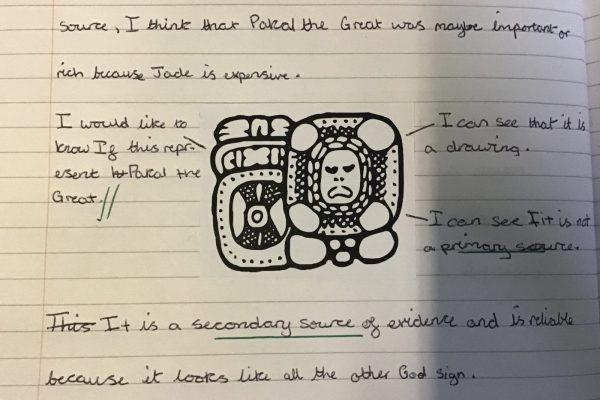 source, I think that Pakal the Great was maybe important or
rich because Jade is expensive.
I would like to
know If this repr-
esent Pakal the
Great.
I can see that it is
a drawing.
I can see it is not
a primary source.
This It is a secondary source of evidence and is reliable
because it looks like all the other God sign.